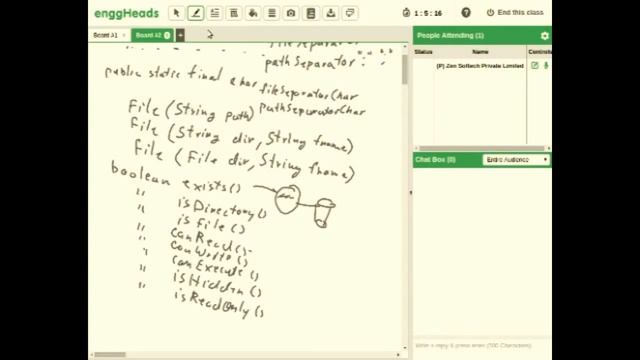 enggHeads
1 : 5 : 16
End this class
Board A1
Board A2
fileSeparator
pathSeparator
public static final char fileSeparatorChar
pathSeparatorChar
File (String path)
File (String dir, String fname)
File (File dir, String fname)
boolean exists()
" isDirectory()
" isFile()
" canRead()
" canWrite()
" canExecute()
" isHidden()
" isReadOnly()
People Attending (1)
Status Name Controls
(P) Zen Softech Private Limited
Chat Box (0) Entire Audience
Write a reply & press enter (700 Characters)